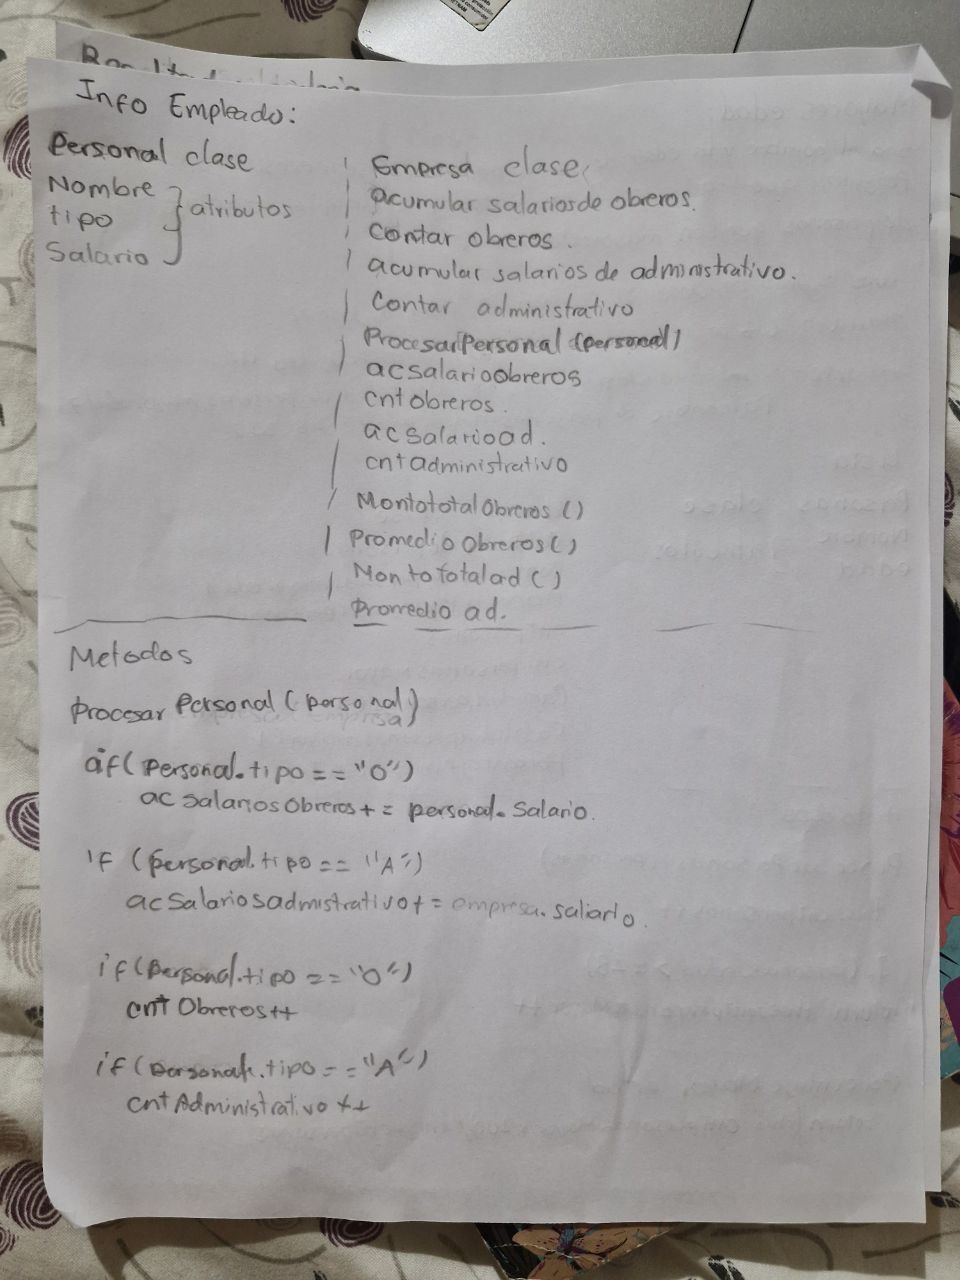 Info Empleado:
Personal clase
Nombre
tipo
Salario
atributos
Empresa clase
acumular salarios de obreros.
Contar obreros.
acumular salarios de administrativo.
Contar administrativo
ProcesarPersonal (personal)
acsalarioobreros
cntobreros.
acsalarioad.
cntadministrativo
MontototalObreros ()
PromedioObreros()
Montototalad ()
Promedio ad.
Metodos
procesar Personal (personal)
if (Personal.tipo == "O")
acsalariosObreros += personal.Salario.
if (personal.tipo == "A")
acSalariosadmistrativo += empresa.saliario.
if (Personal.tipo == "O")
cntObreros++
if (personal.tipo == "A")
cntAdministrativo ++